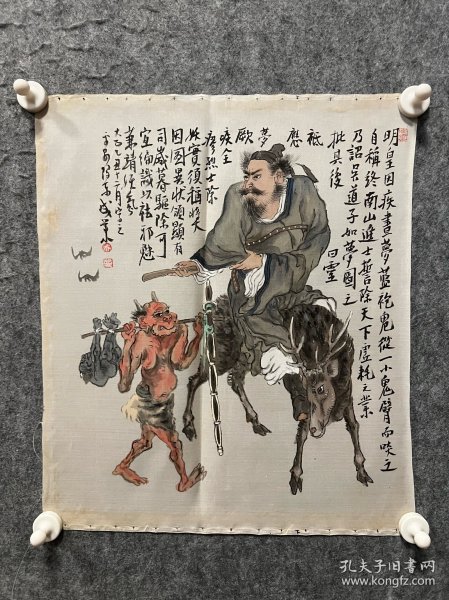 明皇因疾晝夢藍袍鬼從一小鬼臂而啖之
自稱終南山進士誓除天下虛耗之業
乃詔吳道子如夢圖之
批其後
曰靈
祗
應
夢
厥
疾
士除
妖實須稱將大
因圖異狀頒顯有
司歲暮驅除可
宜徧識以祛邪魅
兼靖
孔夫子旧书网
www.kongfz.com